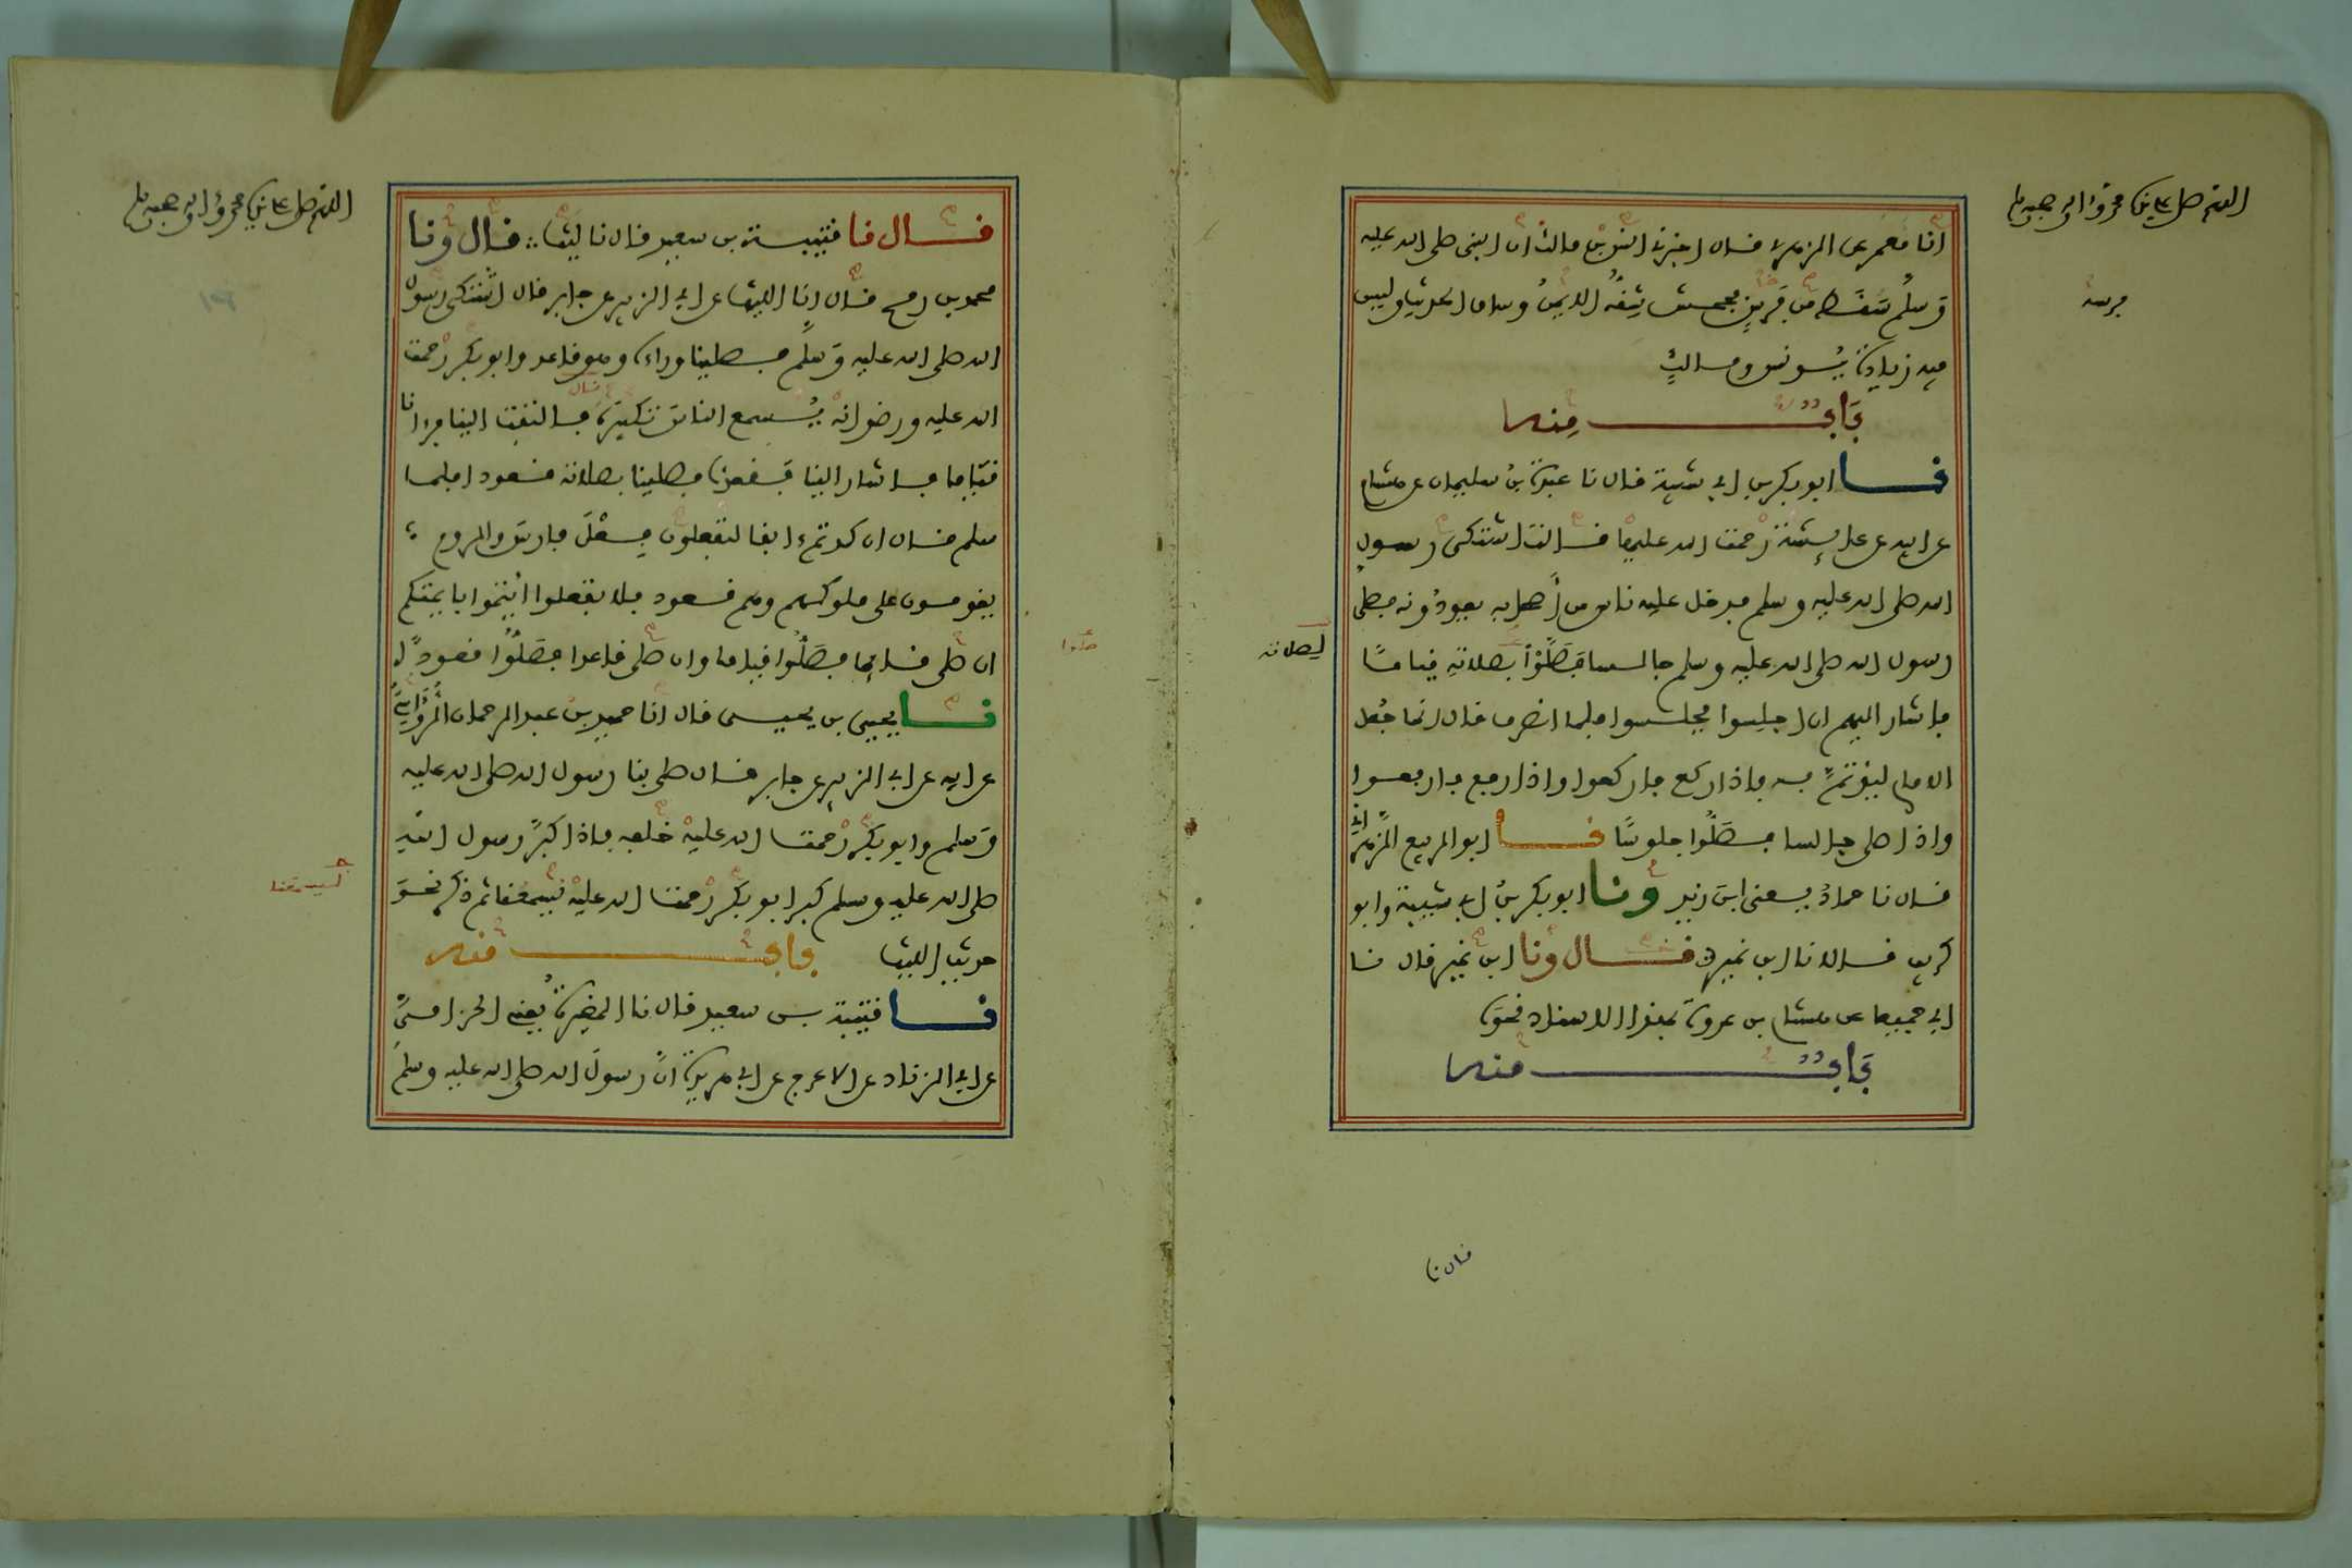 اللهم صل على نبيك محمد وآله وصحبه وسلم
فرسه
انا معمر عن الزهري قال اخبرني انس بن مالك ان النبي صلى الله عليه
وسلم سقط من فرس فجحش شقه الايمن وساق الحديث وليس
فيه زيادة يونس ومالك
باب منه
نا ابو بكر بن ابي شيبة قال نا عبدة بن سليمان عن هشام
عن ابيه عن عائشة رحمت الله عليها قالت اشتكى رسول
الله صلى الله عليه وسلم فدخل عليه ناس من اصحابه يعودونه فصلى
رسول الله صلى الله عليه وسلم جالسا فصلوا بصلاته قياما
لصلاته
فاشار اليهم ان اجلسوا فجلسوا فلما انصرف قال انما جعل
الامام ليؤتم به فاذا ركع فاركعوا واذا رفع فارفعوا
واذا صلى جالسا فصلوا جلوسا نا ابو الربيع الزهراني
قال نا حماد يعني ابن زيد ونا ابو بكر بن ابي شيبة وابو
كريب قالا نا ابن نمير قال ونا ابن نمير قال نا
ابي جميعا عن هشام بن عروة بهذا الاسناد نحوه
باب منه
قال نا
اللهم صل على نبيك محمد وآله وصحبه وسلم
قال نا قتيبة بن سعيد قال نا ليث قال ونا
محمد بن رمح قال انا الليث عن ابي الزبير عن جابر قال اشتكى رسول
الله صلى الله عليه وسلم فصلينا وراءه وهو قاعد وابو بكر رحمت
الله عليه ورضوانه يسمع الناس تكبيره قال فالتفت الينا فرءانا
قياما فاشار الينا فقعدنا فصلينا بصلاته قعودا فلما
سلم قال ان كدتم ءانفا لتفعلون فعل فارس والروم
يقومون على ملوكهم وهم قعود فلا تفعلوا ايتموا بايمتكم
ان صلى قائما فصلوا قياما وان صلى قاعدا فصلوا قعودا
صلوا
نا يحيى بن يحيى قال انا حميد بن عبد الرحمان الرؤاسي
عن ابيه عن ابي الزبير عن جابر قال صلى بنا رسول الله صلى الله عليه
وسلم وابو بكر رحمت الله عليه خلفه فاذا كبر رسول الله
صلى الله عليه وسلم كبر ابو بكر رحمت الله عليه يسمعنا ثم ذكر نحو
ليسمعنا
حديث الليث باب منه
نا قتيبة بن سعيد قال نا المغيرة يعني الحزامي
عن ابي الزناد عن الاعرج عن ابي هريرة ان رسول الله صلى الله عليه وسلم